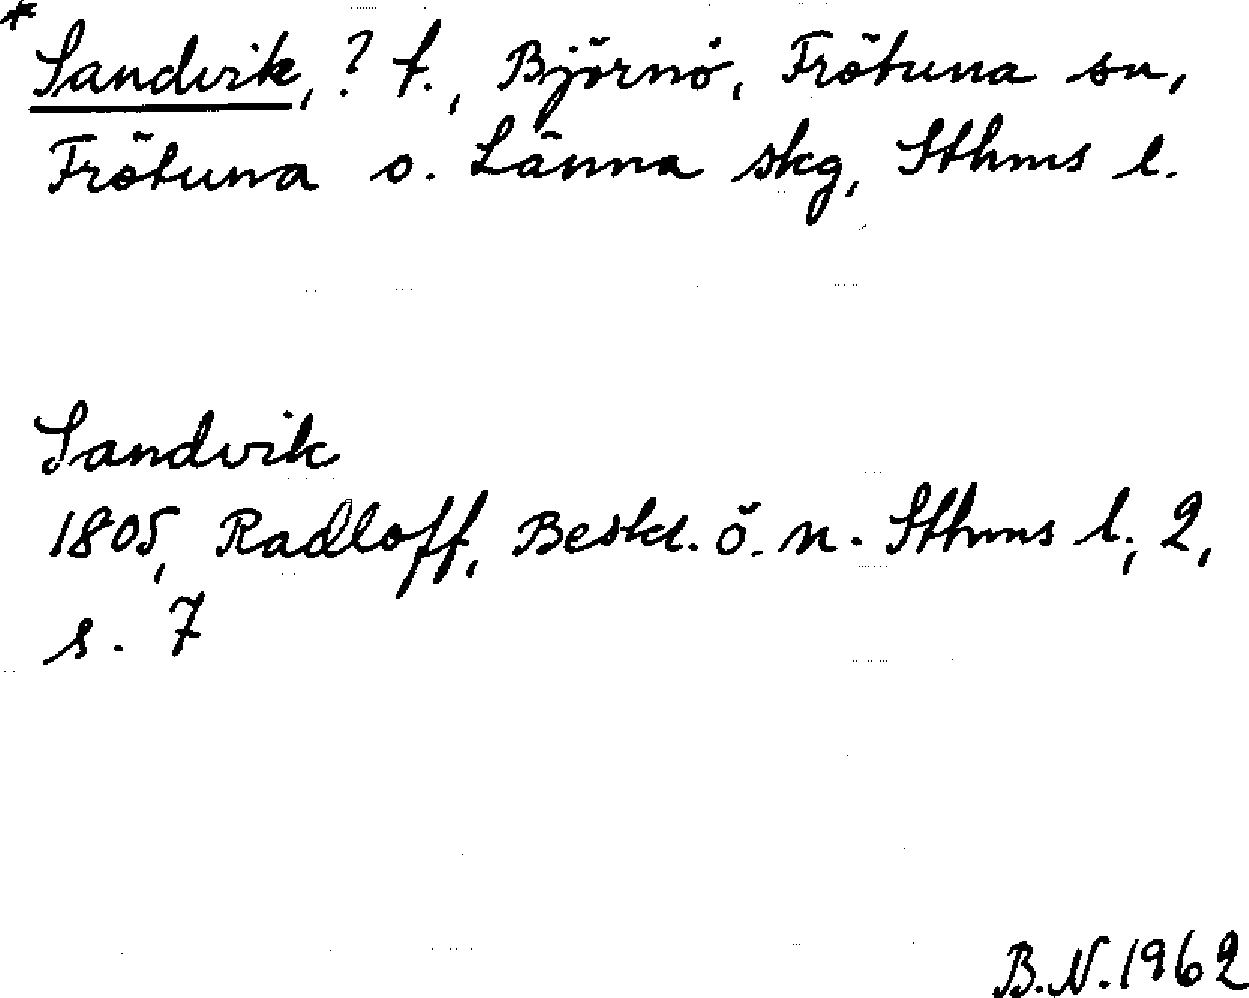 * Sandvik, ? t., Björnö, Frötuna sn,
Frötuna o. Länna skg, Sthms l.
Sandvik
1805, Radloff, Beskr. ö. n. Sthms l., 2,
s. 7
B.N. 1962